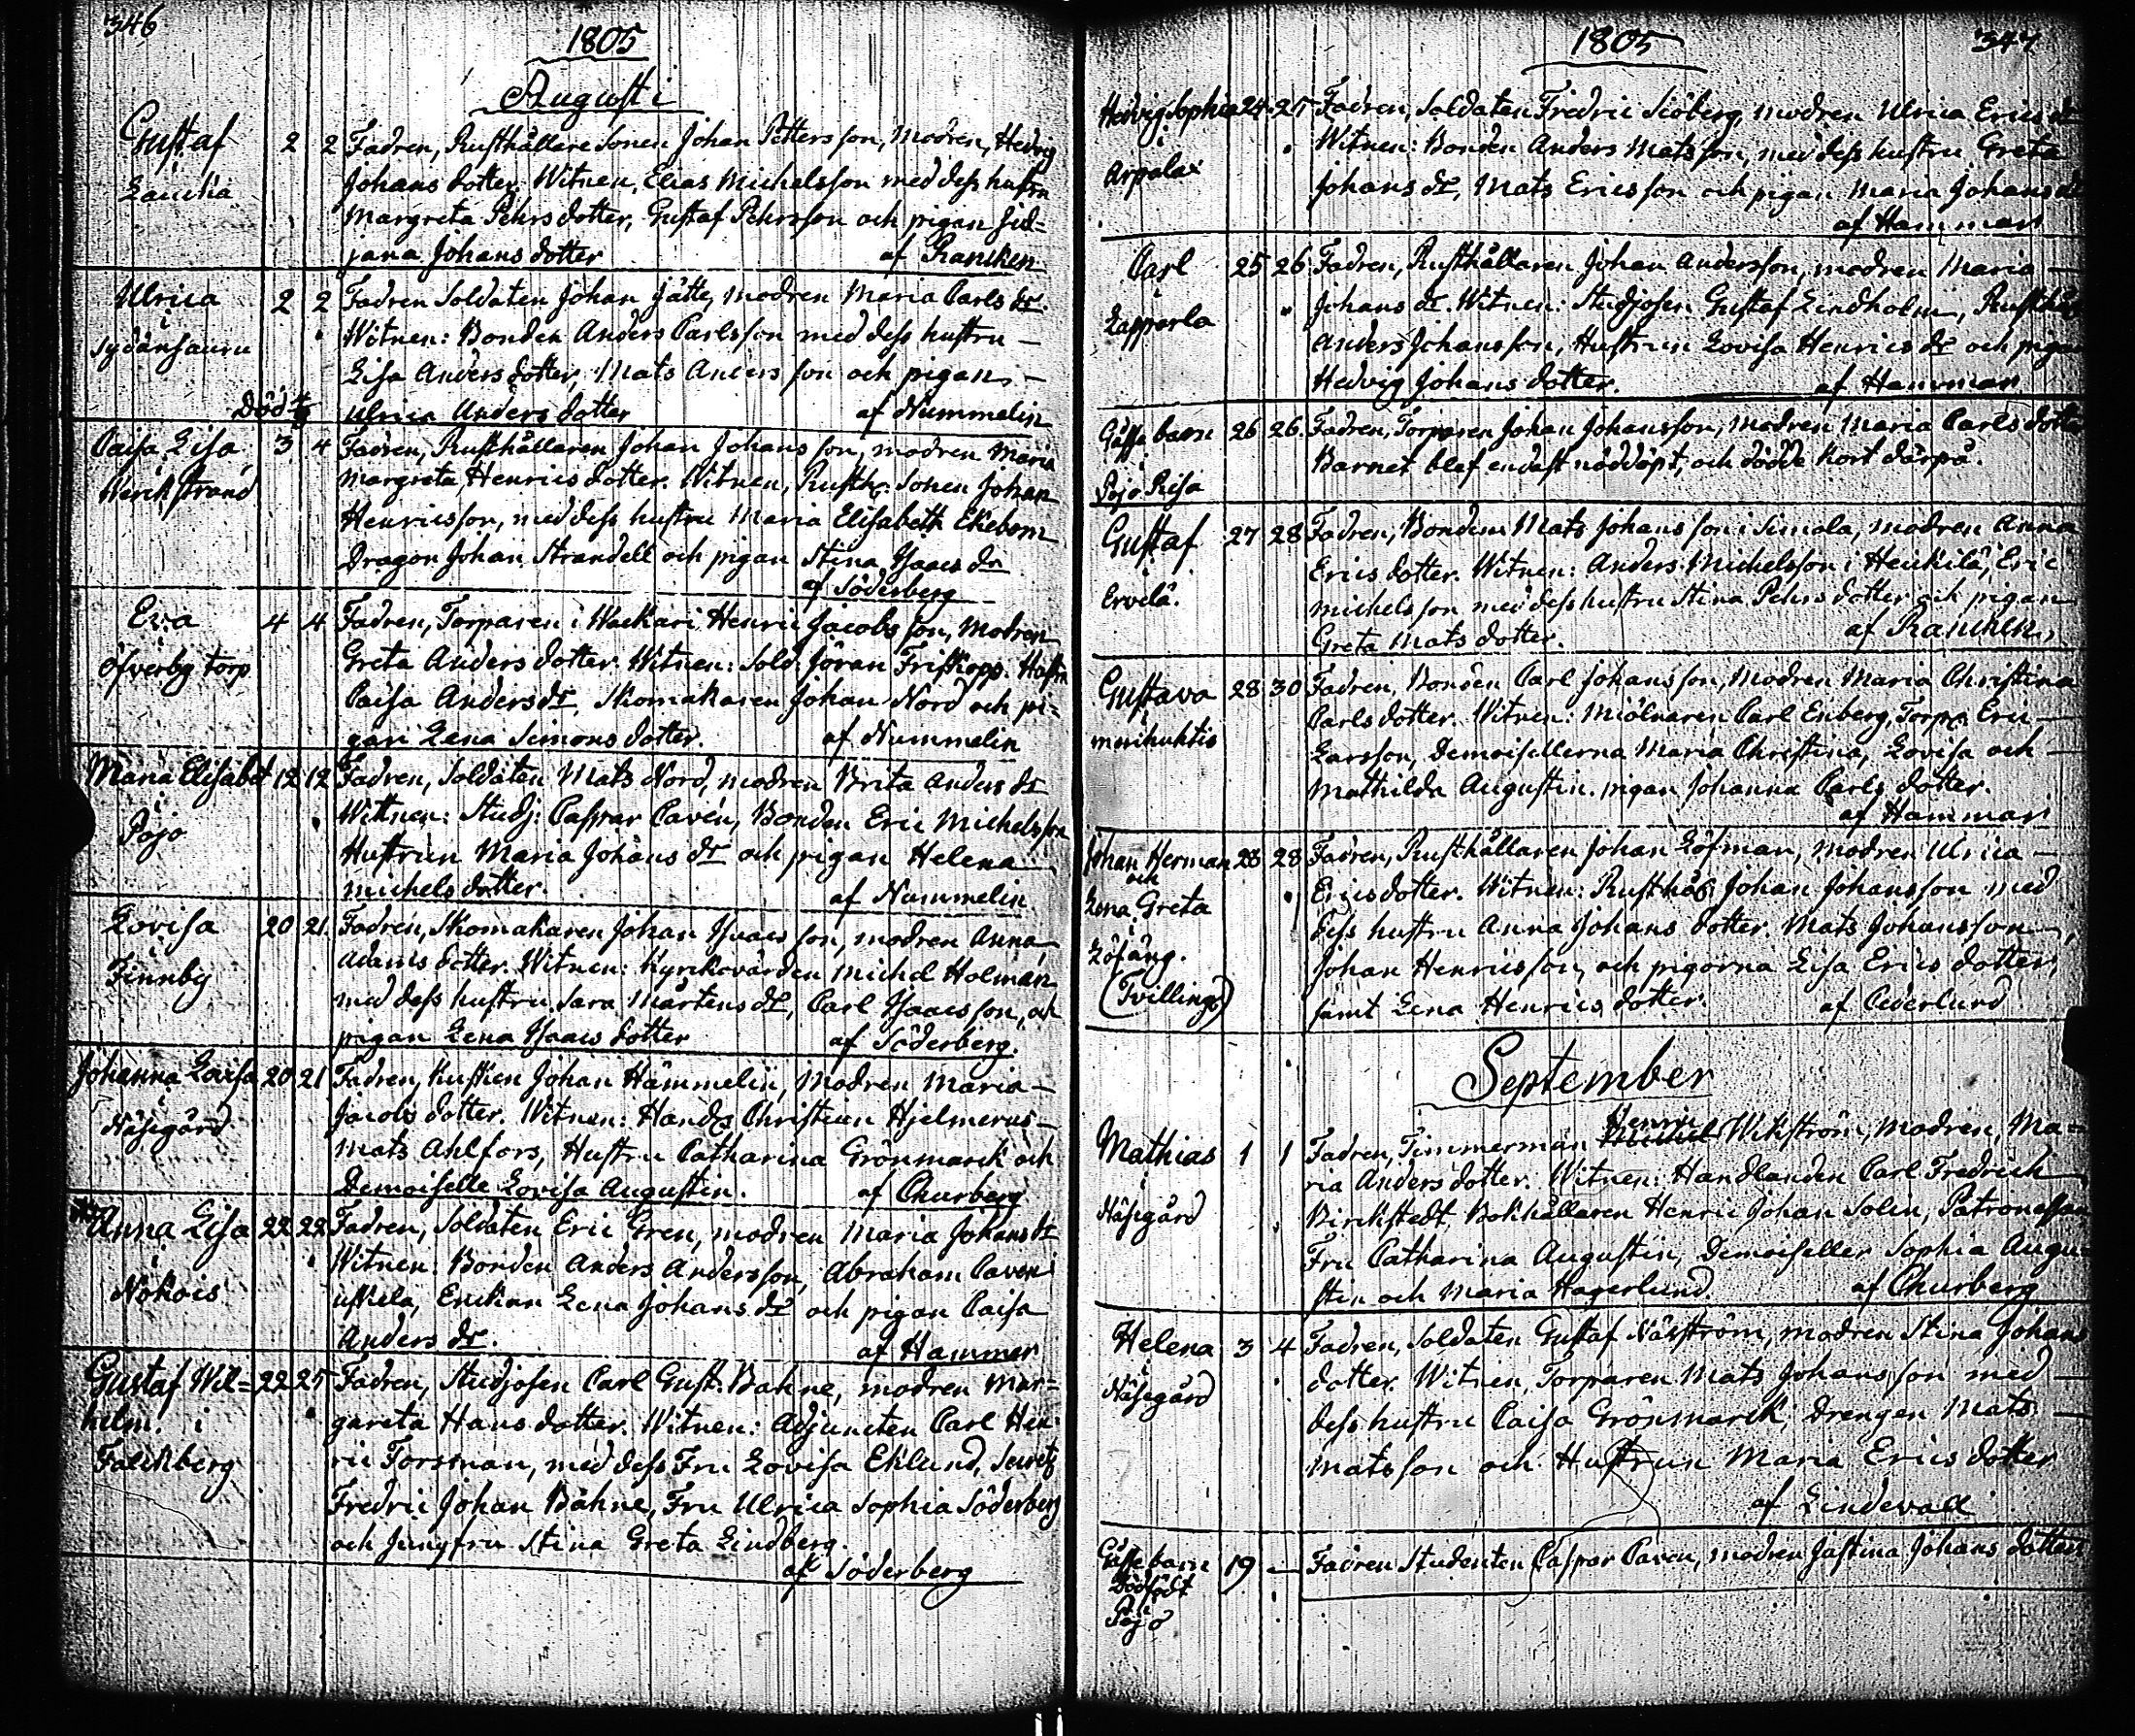 346
1805
Augusti
Gustaf 2 2 Fadren, Rusthållare Sonen Johan Pettersson, Modren, Hedvig
i Johans dotter. Witnen, Elias Michelsson med dess hustru
Laukka Margreta Pehrs dotter, Gustaf Pehrsson och pigan
jana Johans dotter af Rancken
Ulrica 2 2 Fadren Soldaten Johan Jätte, modren Maria Carls dr.
i Witnen: Bonden Anders Carlsson med dess hustru –
Sydänsauru Lisa Anders dotter, Mats Andersson och pigan –
Död Ulrica Anders dotter af Nummelin
Caisa Lisa 3 4 Fadren, Rusthållaren Johan Johansson, modren Maria
i Margreta Henrics dotter. Witnen, Rusth. Sonen Johan
Werckstrand Henricsson, med dess hustru Maria Elisabeth Ekebom
Dragon Johan Strandell och pigan Stina Isaacs dr
af Söderberg
Eva 4 4 Fadren, Torparen i Wackari Henric Jacobsson, Modren
Greta Anders dotter. Witnen: Sold. Jöran Friskopp. Hustru
Öfverby torp Caisa Anders dr, Skomakaren Johan Nord och pi-
gan Lena Simons dotter. af Nummelin
Maria Elisabet 12 12 Fadren, Soldaten Mats Nord, modren Brita Anders dr
i Wittnen: Studj: Caspar Cavén, Bonden Eric Michelsson
Pojo Hustrun Maria Johans dr och pigan Helena
Michels dotter. af Nummelin
Lovisa 20 21 Fadren, Skomakaren Johan Isaacsson, modren Anna
i Adams dotter. Witnen: Kyrkovärden Michel Holman
Finnby med dess hustru Sara Mårtens dr, Carl Isaacsson, och
pigan Lena Isaacs dotter af Söderberg.
Johanna Lovisa 20 21 Fadren, Kusken Johan Hämmelin, Modren Maria –
i Jacobs dotter. Witnen: Handl. Christian Hjelmerus –
Näsegård Mats Ahlfors, Hustru Catharina Grönmarck och
Demoiselle Lovisa Augustin. af Churberg
Anna Lisa 22 22 Fadren, Soldaten Eric Gren, modren Maria Johans dr
i Witnen: Bonden Anders Andersson, Abraham Caven i
Nokois uskela, Enckan Lena Johans dr och pigan Caisa
Anders dr. af Hammar
Gustaf Wil= 22 25 Fadren, Studjosen Carl Gust. Bahne, modren Mar=
helm i gareta Hans dotter. Witnen: Adjuncten Carl Hen-
Falckberg ric Forsman, med dess Fru Lovisa Eklund,
Fredric Johan Bähne, Fru Ulrica Sophia Söderberg
och Jungfru Stina Greta Lindberg.
af Söderberg
1805
347
Hedvig Sophia 24 25 Fadren, Soldaten Fredric Siöberg, modren Ulrica Erics dr
i Witnen: Bonden Anders Matsson, med dess hustru Greta
Arpalax Johans dr, Mats Ericsson och pigan Maria Johans dr
af Hammar
Carl 25 26 Fadren, Rusthållaren Johan Andersson, modren Maria –
i Johans dr. Witnen: Studjosen Gustaf Lindholm, Rusthål
Lapparla Anders Johansson, Hustrun Lovisa Henrics dr och pigan
Hedvig Johans dotter. af Hammar
Gåsse barn 26 26. Fadren, Torparen Johan Johansson, modren Maria Carls dotter
i Barnet blef endast nöddöpt, och dödde kort därpå.
Pojo Risa
Gustaf 27 28 Fadren, Bonden Mats Johansson i Simola, modren Anna
i Erics dotter. Witnen: Anders Michelsson i Heickilä, Eric
Ervelä. Michelsson med dess hustru Stina Pehrs dotter och pigan
Greta Mats dotter. af Rancken,
Gustava 28 30 Fadren, Bonden Carl Johansson, Modren Maria Christina
i Carls dotter. Witnen: Miölnaren Carl Enberg, Torp. Eric –
Merihuhtis Larsson, Demoisellerna Maria Christina, Lovisa och –
Mathilda Augustin. pigan Johanna Carls dotter.
af Hammar
Johan Herman 28 28 Fadren, Rusthållaren Johan Löfman, modren Ulrica –
och
Lena Greta Erics dotter. Witnen: Rusthål. Johan Johansson med
i dess hustru Anna Johans dotter. Mats Johansson –,
Löfäng. Johan Henricsson, och pigorna Lisa Erics dotter,
(Tvillingr) samt Lena Henrics dotter. af Cederlund
September
Henric
Mathias 1 1 Fadren, Timmerman Michel Wikström, Modren, Ma=
i ria Anders dotter. Witnen: Handlanden Carl Fredrich
Näsegård Birckstedt, Bokhållaren Henric Johan Solin, Patronessan
Fru Catharina Augustin, Demoiseller Sophia Augu-
stin och Maria Hagerlund. af Churberg
Helena 3 4 Fadren, Soldaten Gustaf Näsström, modren Stina Johans
i dotter. Witnen, Torparen Mats Johansson med –
Näsegård dess hustru Caisa Grönmarck, Drengen Mats –
Matsson och Hustrun Maria Erics dotter
af Lindevall
Gåsse barn 19 – Fadren Studenten Caspar Caven, modren Justina Johans dotter
Dödfödt
i
Pojo